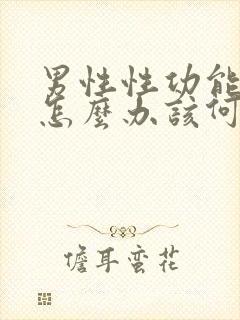 男性性功能
怎麼办該何
儋耳蛮花